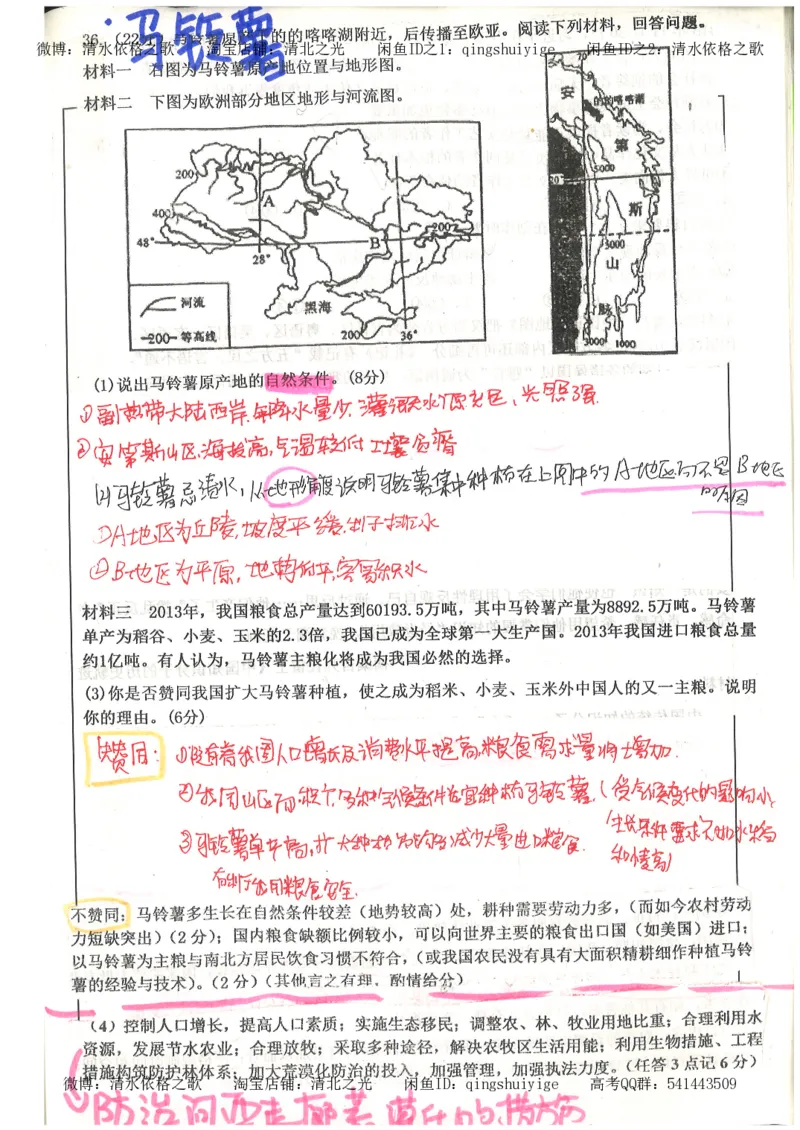 马铃薯
36. (22分) 马铃薯原产于的的喀喀湖附近，后传播至欧亚。阅读下列材料，回答问题。
微博：清水依格之歌 淘宝店铺：清北之光 闲鱼ID之1：qingshuiyige 闲鱼ID之2：清水依格之歌
材料一 右图为马铃薯原产地位置与地形图。
材料二 下图为欧洲部分地区地形与河流图。
70°
安
的的喀喀湖
第
5000
20°
斯
3000
山
脉
3000 1000
200
A
400
48°
28°
B
200
河流
200 等高线
黑海
200
36°
(1)说出马铃薯原产地的自然条件。(8分)
①副热带大陆西岸,年降水量少,灌溉水源充足、光照强
②安第斯山区,海拔高,气温较低 土壤
(2)马铃薯忌渍水,从地形角度说明马铃薯集中种植在上图中的A地区而不是B地区
的原因
①A地区为丘陵,坡度平缓,利于排水
②B地区为平原,地势低平,容易积水
材料三 2013年，我国粮食总产量达到60193.5万吨，其中马铃薯产量为8892.5万吨。马铃薯
单产为稻谷、小麦、玉米的2.3倍，我国已成为全球第一大生产国。2013年我国进口粮食总量
约1亿吨。有人认为，马铃薯主粮化将成为我国必然的选择。
(3)你是否赞同我国扩大马铃薯种植，使之成为稻米、小麦、玉米外中国人的又一主粮。说明
你的理由。(6分)
赞同： ①随着我国人口增长及消费水平提高,粮食需求量将增加.
②我国山区面积广,多种气候条件适宜种植马铃薯.(受气候变化的影响小,
生长条件需求不如水稻
和
③马铃薯单产高,扩大种植 减少大量进口粮食.
有利于 粮食安全.
不赞同：马铃薯多生长在自然条件较差（地势较高）处，耕种需要劳动力多，（而如今农村劳动
力短缺突出）（2分）；国内粮食缺额比例较小，可以向世界主要的粮食出口国（如美国）进口；
以马铃薯为主粮与南北方居民饮食习惯不符合，（或我国农民没有具有大面积精耕细作种植马铃
薯的经验与技术）。（2分）（其他言之有理，酌情给分）
（4）控制人口增长，提高人口素质；实施生态移民；调整农、林、牧业用地比重；合理利用水
资源，发展节水农业；合理放牧；采取多种途径，解决农牧区生活用能；利用生物措施、工程
措施构筑防护林体系；加大荒漠化防治的投入，加强管理，加强执法力度。（任答3点记6分）
微博：清水依格之歌 淘宝店铺：清北之光 闲鱼ID：qingshuiyige 高考QQ群：541443509
防治河西走廊 的措施